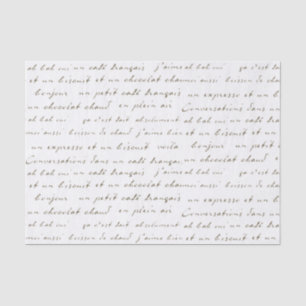 al bal oui un café français j'aime al bal oui ça c'est tout
et un biscuit et un chocolat chaumei aussi buisson de chau
bonjour un petit café français un expresso et un biscuit
un chocolat chaud en plein air Conversations dans un
al bal oui ça c'est tout absolument al bal oui un café fra
mei aussi buisson de chaud j'aime bien et un biscuit et un
bonjour un petit café un expresso et un biscuit voila bonjour
Conversations dans un café français un chocolat chaud
et un biscuit et un chocolat chaumei aussi buisson de chau
bonjour un petit café français un expresso et un biscuit
un chocolat chaud en plein air Conversations dans un
al bal oui ça c'est tout absolument al bal oui un café fra
mei aussi buisson de chaud j'aime bien et un biscuit et un